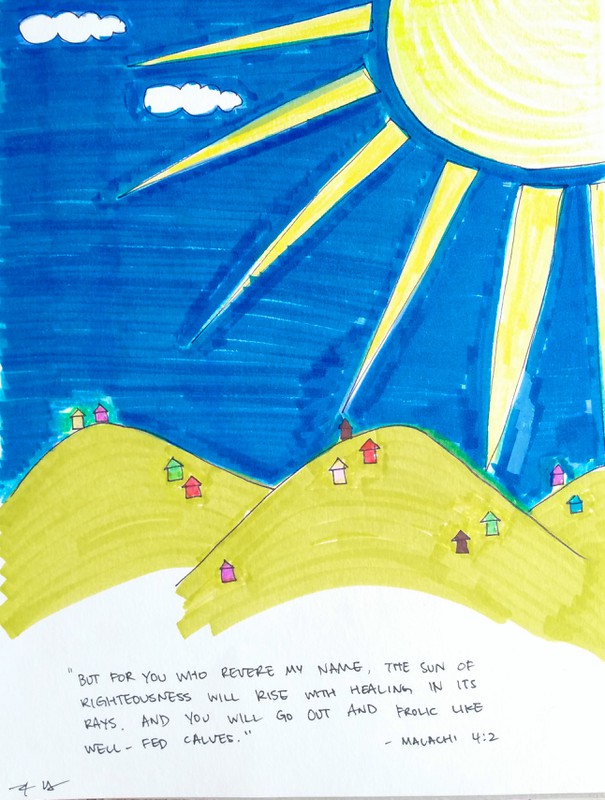 "BUT FOR YOU WHO REVERE MY NAME, THE SUN OF
RIGHTEOUSNESS WILL RISE WITH HEALING IN ITS
RAYS. AND YOU WILL GO OUT AND FROLIC LIKE
WELL-FED CALVES."
- MALACHI 4:2